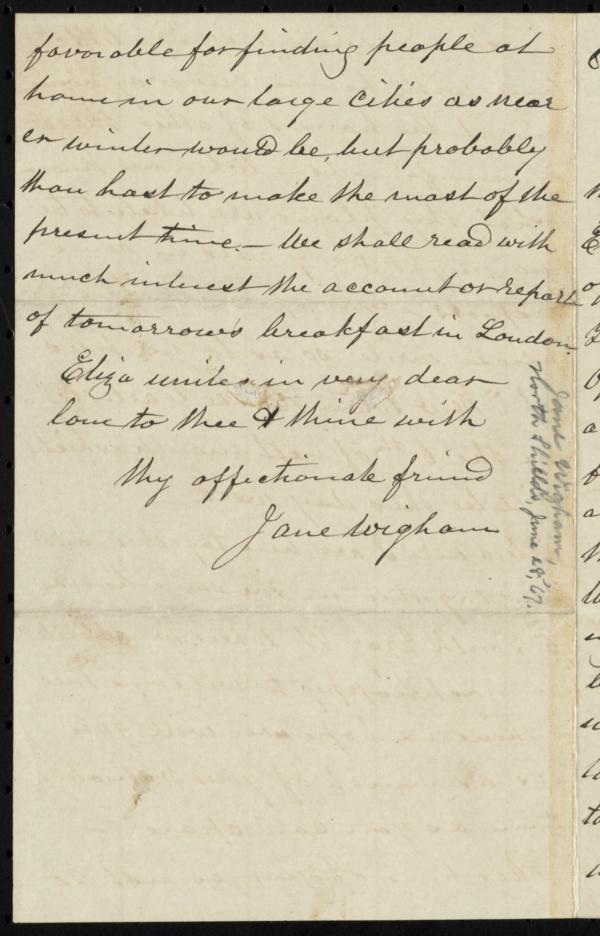 favorable for finding people at
home in our large Cities as near
er winter would be, but probably
thou hast to make the most of the
present time. — We shall read with
much interest the account or report
of tomorrow's breakfast in London.
Eliza unites in very dear
love to thee & thine with
thy affectionate friend
Jane Wigham
Jane Wigham,
North Shields, June 28, '67.